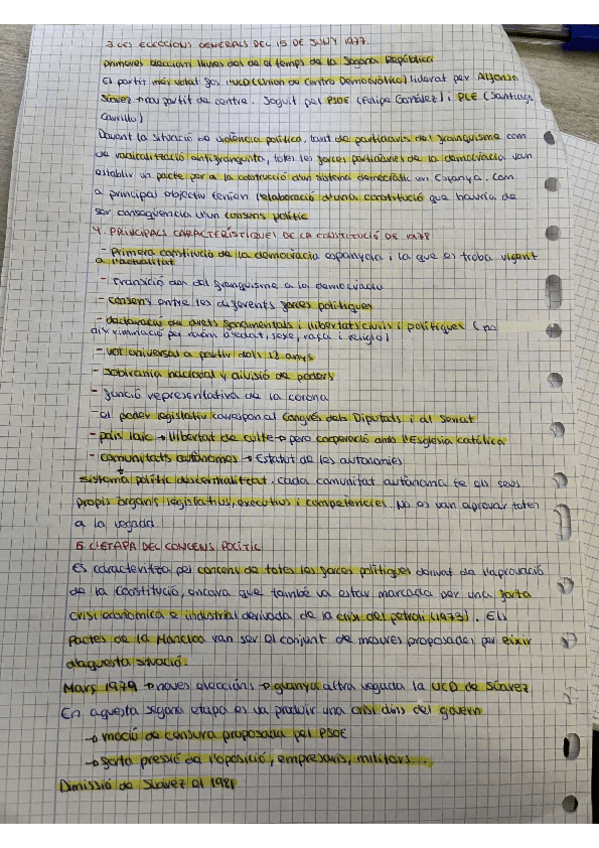 3. LES ELECCIONS GENERALS DEL 15 DE JUNY 1977.
primeres eleccions lliures des de el temps de la Segona República
El partit més votat fou UCD (Unión de Centro Democrático) liderat per Alfonso
Súarez → nou partit de centre. Seguit pel PSOE (Felipe González) i PCE (Santiago
Carrillo)
Davant la situació de violència política, tant de partidaris del franquisme com
de radicalització antifranquista, totes les forces partidàries de la democràcia van
establir un pacte per a la construcció d'un sistema democràtic en Espanya. Com
a principal objectiu tenien l'elaboració d'una constitució que hauria de
ser conseqüència d'un consens polític
4. PRINCIPALS CARACTERÍSTIQUES DE LA CONSTITUCIÓ DE 1978
- Primera constitució de la democràcia espanyola i la que es troba vigent
a l'actualitat
- transició des del franquisme a la democràcia
- consens entre les diferents forces polítiques
- declaració de drets fonamentals i llibertats civils i polítiques (no
discriminació per raóns d'edat, sexe, raça i religió)
- vot universal a partir dels 18 anys
- sobirania nacional y divisió de poders
- funció representativa de la corona
- el poder legislatiu correspon al Congrés dels Diputats i al Senat
- país laic → llibertat de culte → pero cooperació amb l'Església catòlica
- comunitats autònomes → Estatut de les autonomies
sistema polític descentralitzat. cada comunitat autònoma te els seus
propis òrgans legislatius, executius i competències. No es van aprovar totes
a la vegada.
5. L'ETAPA DEL CONCENS POLÍTIC
Es caracteritza pel concens de totes les forces polítiques derivat de l'aprovació
de la Constitució, encara que també va estar marcada per una forta
crisi econòmica e industrial derivada de la crisi del petroli (1973). Els
Pactes de la Moncloa van ser el conjunt de mesures proposades per eixir
d'aquesta situació.
Març 1979 → noves eleccións → guanya altra vegada la UCD de Súarez
En aquesta segona etapa es va produir una crisi dins del govern
→ moció de censura proposada pel PSOE
→ forta pressió de l'oposició, empresaris, militars...
Dimissió de Súarez al 1981